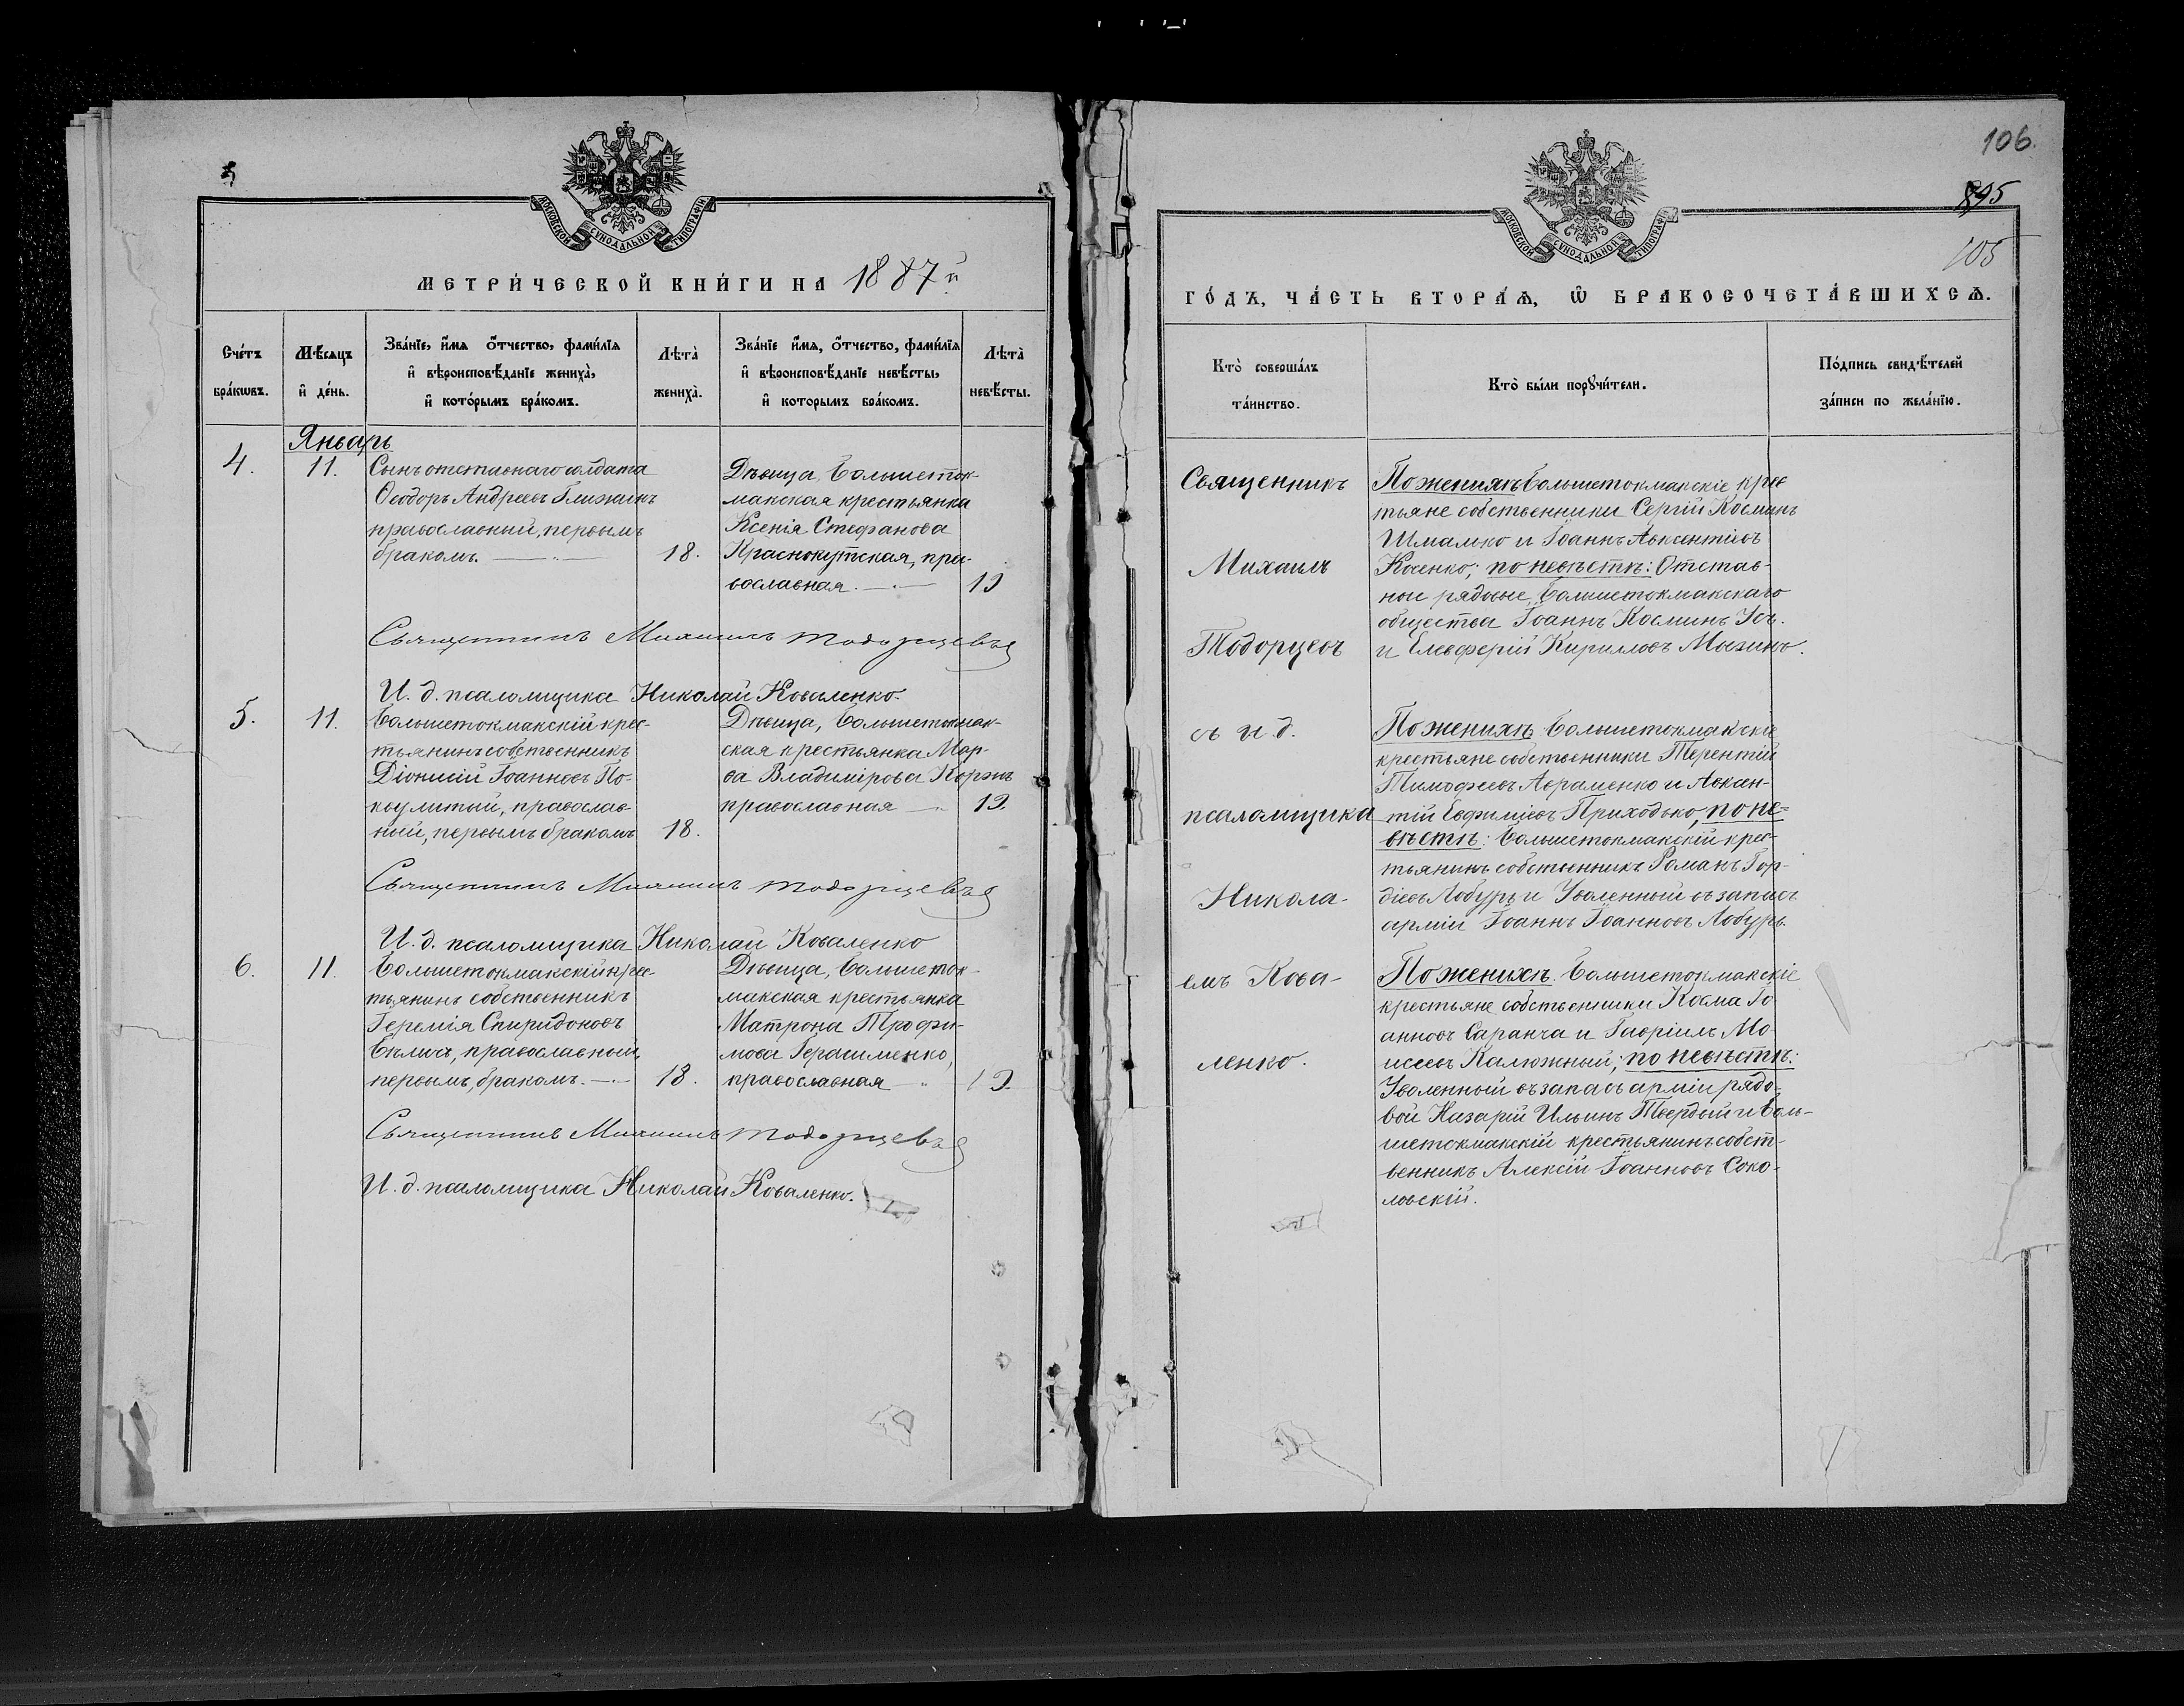 106.
895
105
МОСКОВСКОЙ СУНОДАЛЬНОЙ ТИПОГРАФІИ
МЕТРИ́ЧЕСКОЙ КНИ́ГИ НА 1887й
Сче́тъ бра́кωвъ.
Мѣ́сяцъ и҆ де́нь.
Зва́нїе, и҆́мѧ ѻ҆́тчество, фами́лїѧ
и҆ вѣроисповѣ́данїе жениха̀,
и҆ кото́рымъ бра́комъ.
Лѣта̀ жениха̀.
Зва́нїе и҆́мѧ, ѻ҆́тчество, фами́лїѧ
и҆ вѣроисповѣ́данїе невѣ́сты,
и҆ которымъ бра́комъ.
Лѣта̀ невѣ́сты.
Январь
4.
11.
Сынъ отставнаго солдата
Ѳеодоръ Андреевъ
православный, первымъ
бракомъ.
18.
Дѣвица, Большеток-
макская крестьянка
Ксенія Стефанова
Краснокутская, пра-
вославная.
19
Священникъ Михаилъ Тодорцевъ
И. д. псаломщика Николай Коваленко.
5.
11.
Большетокмакскій крес-
тьянинъ собственникъ
Діонисій Іоанновъ По-
православ-
ный, первымъ бракомъ
18.
Дѣвица, Большетокмак-
ская крестьянка Мар-
ѳа Владимірова Коржъ
православная
19.
Священникъ Михаилъ Тодорцевъ
И. д. псаломщика Николай Коваленко
6.
11.
Большетокмакскій крес-
тьянинъ собственникъ
Іеремія Спиридоновъ
православный,
первымъ бракомъ.
18.
Дѣвица, Большеток-
макская крестьянка
Матрона Трофи-
мова Герасименко,
православная
19.
Священникъ Михаилъ Тодорцевъ
И. д. псаломщика Николай Коваленко.
МОСКОВСКОЙ СУНОДАЛЬНОЙ ТИПОГРАФІИ
ГО́ДЪ, ЧА́СТЬ ВТОРА́Ѧ, Ѽ БРАКОСОЧЕТА́ВШИХСѦ.
Кто̀ соверша́лъ
та́инство.
Кто̀ бы́ли порꙋчи́тели.
По́дпись свидѣ́телей
за́писи по жела́нїю.
Священникъ
Михаилъ
Тодорцевъ
съ и. д.
псаломщика
Никола-
емъ Кова-
ленко.
По женихѣ Большетокмакскіе крес
тьяне собственники Сергій Косминъ
Шматко и Іоаннъ Авксентіевъ
Косенко; по невѣстѣ: Отстав-
ные рядовые Большетокмакскаго
общества Іоаннъ Косминъ Усъ.
и Елевферій Кирилловъ Мызинъ.
По женихѣ Большетокмакскіе
крестьяне собственники Терентій
Тимофеевъ Авраменко и Аѳкан-
тій Евфиміевъ Приходько, по не-
вѣстѣ: Большетокмакскій крес-
тьянинъ собственникъ Романъ Гор-
діевъ Лобурь и Уволенный въ запасъ
арміи Іоаннъ Іоанновъ Лобурь.
По женихѣ. Большетокмакскіе
крестьяне собственники Косма Іо
анновъ Саранча и Гавріилъ Мо
исеевъ Калюжный; по невѣстѣ:
Уволенный въ запасъ арміи рядо-
вой Назарій Ильинъ Твердый и Боль-
шетокмакскій крестьянинъ собст-
венникъ Алексій Іоанновъ Соко-
ловскій.